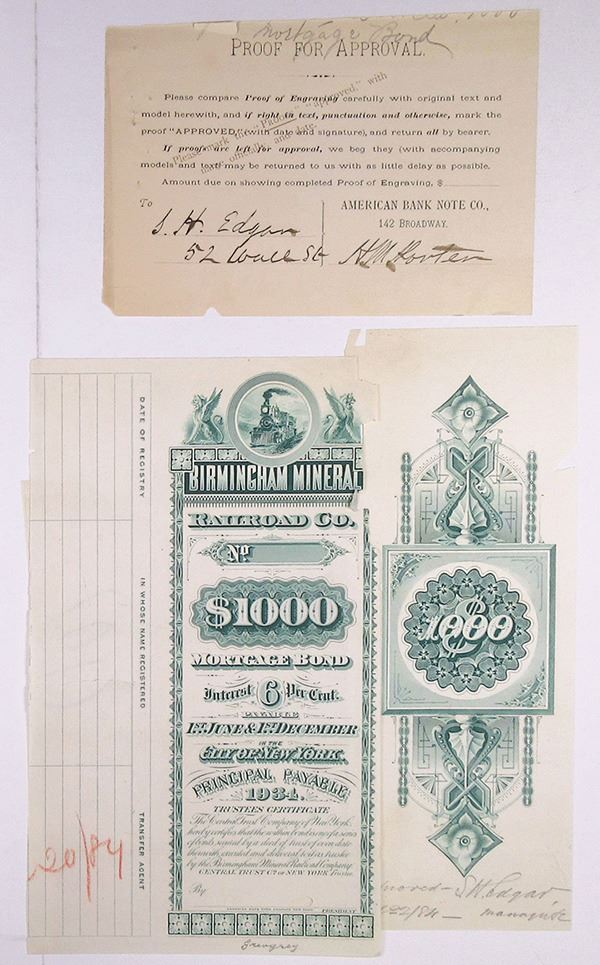 Mortgage Bond
PROOF FOR APPROVAL.
Please compare Proof of Engraving carefully with original text and
model herewith, and if right in text, punctuation and otherwise, mark the
proof "APPROVED," (with date and signature), and return all by bearer.
If proofs are left for approval, we beg they (with accompanying
models and text) may be returned to us with as little delay as possible.
Amount due on showing completed Proof of Engraving, $
Please mark the "Proofs," "approved," with
name officially, and date.
To
S. H. Edgar
52 Wall St
AMERICAN BANK NOTE CO.,
142 BROADWAY.
DATE OF REGISTRY
IN WHOSE NAME REGISTERED
TRANSFER AGENT
20/84
BIRMINGHAM MINERAL
RAILROAD CO.
No.
$1000
MORTGAGE BOND
Interest 6 Per Cent.
PAYABLE
1ST JUNE & 1ST DECEMBER
IN THE
CITY OF NEW YORK.
PRINCIPAL PAYABLE
1934.
TRUSTEES CERTIFICATE
The Central Trust Company of New York,
hereby certifies that the within bond is one of a series
of bonds secured by a deed of trust of even date
therewith, executed and delivered to it as trustee
by the Birmingham Mineral Railroad Company.
CENTRAL TRUST CO. OF NEW YORK, Trustee.
By
PRESIDENT
$1000
S H Edgar
22/84